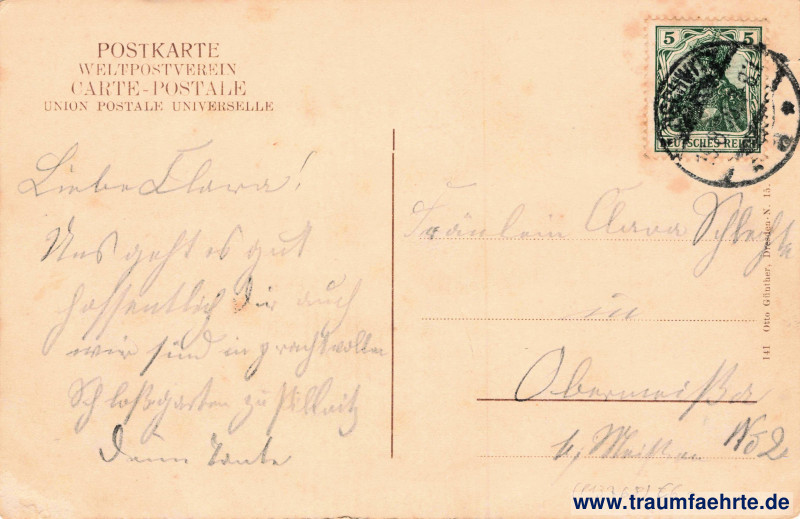 POSTKARTE
WELTPOSTVEREIN
CARTE-POSTALE
UNION POSTALE UNIVERSELLE
5 5
DEUTSCHES REICH
Liebe Clara!
Uns geht es gut
hoffentlich Dir auch
wir sind in prachtvollen
Schloßgarten zu Pillnitz
Deine Tante
Fräulein Clara
in
Obermeißa
b. Meißen No 2
141 Otto Günther, Dresden-N. 15.
www.traumfaehrte.de